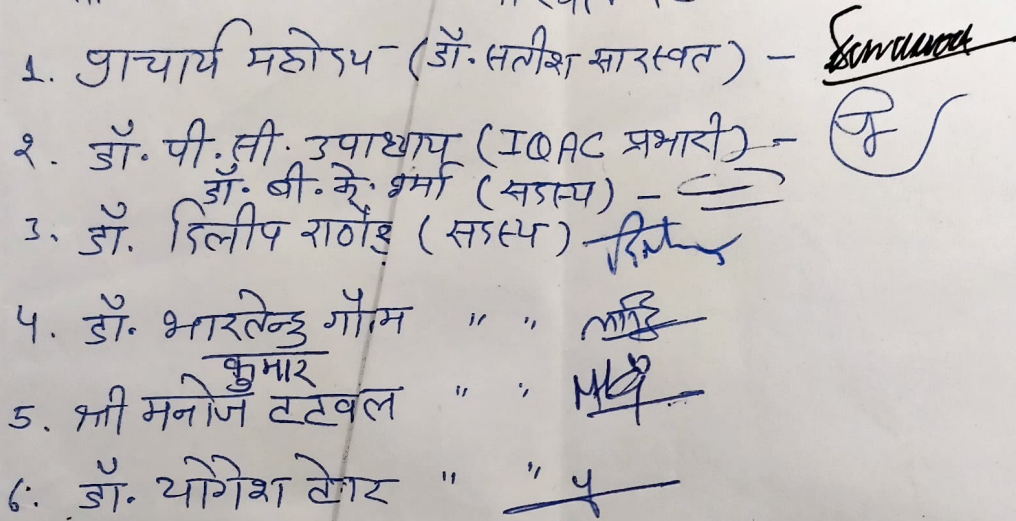 1. प्राचार्य महोदय (डॉ. सतीश सारस्वत) -
२. डॉ. पी. सी. उपाध्याय (IQAC प्रभारी) -
डॉ. बी. के. शर्मा (सदस्य) -
3. डॉ. दिलीप राठौड़ (सदस्य)
4. डॉ. भारतेन्दु गौतम " "
कुमार
5. श्री मनोज टटवाल " "
6. डॉ. योगेश " "